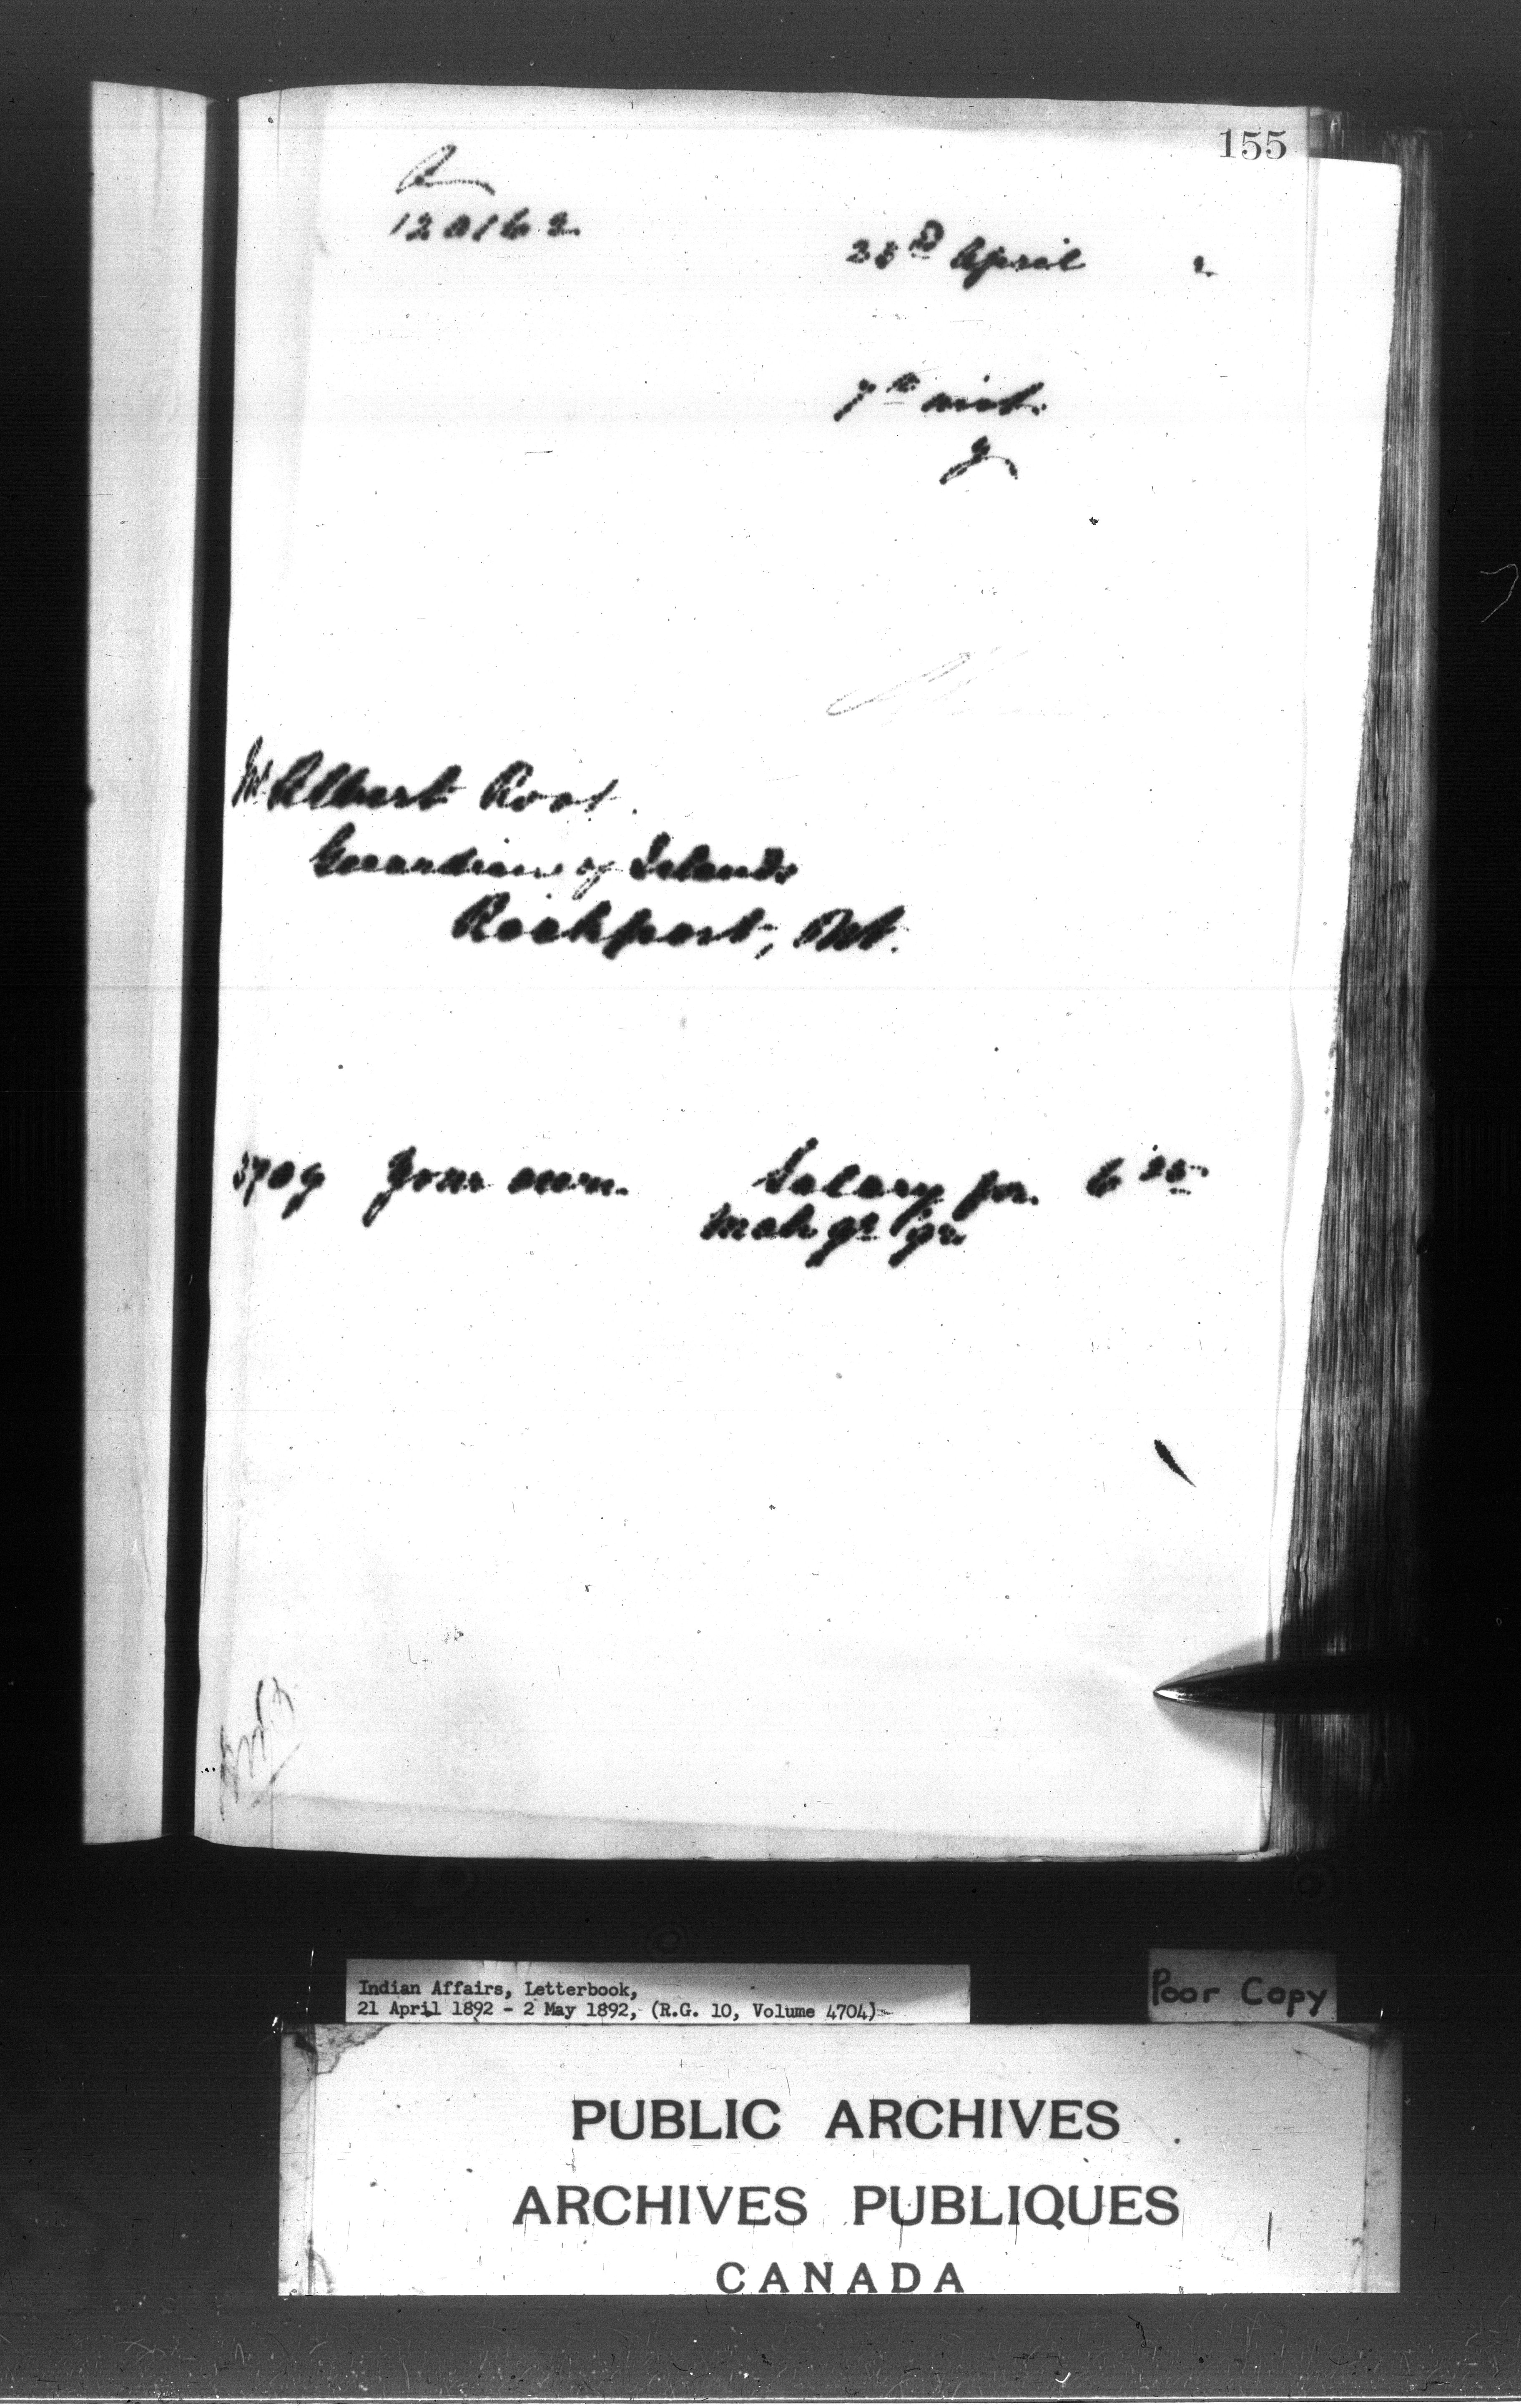 155
120162
23rd April 2
7th inst.
Mr Albert Root.
Guardian of Islands
Rockport, Ont.
3709 Your own. Salary for 6 25
Mch qr
Indian Affairs, Letterbook,
21 April 1892 - 2 May 1892, (R.G. 10, Volume 4704)
Poor Copy
PUBLIC ARCHIVES
ARCHIVES PUBLIQUES
CANADA